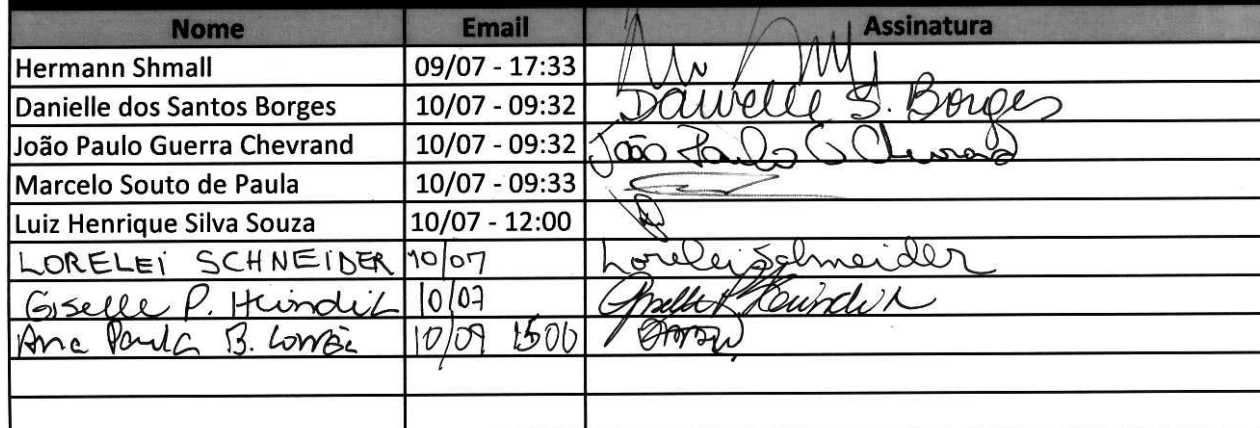 Nome Email Assinatura
Hermann Shmall 09/07 - 17:33
Danielle dos Santos Borges 10/07 - 09:32 Danielle S. Borges
João Paulo Guerra Chevrand 10/07 - 09:32 João Paulo G Chevrand
Marcelo Souto de Paula 10/07 - 09:33
Luiz Henrique Silva Souza 10/07 - 12:00
LORELEI SCHNEIDER 10/07 Lorelei Schneider
Giselle P. 10/07 Giselle P
Ana Paula B. 10/07 1500